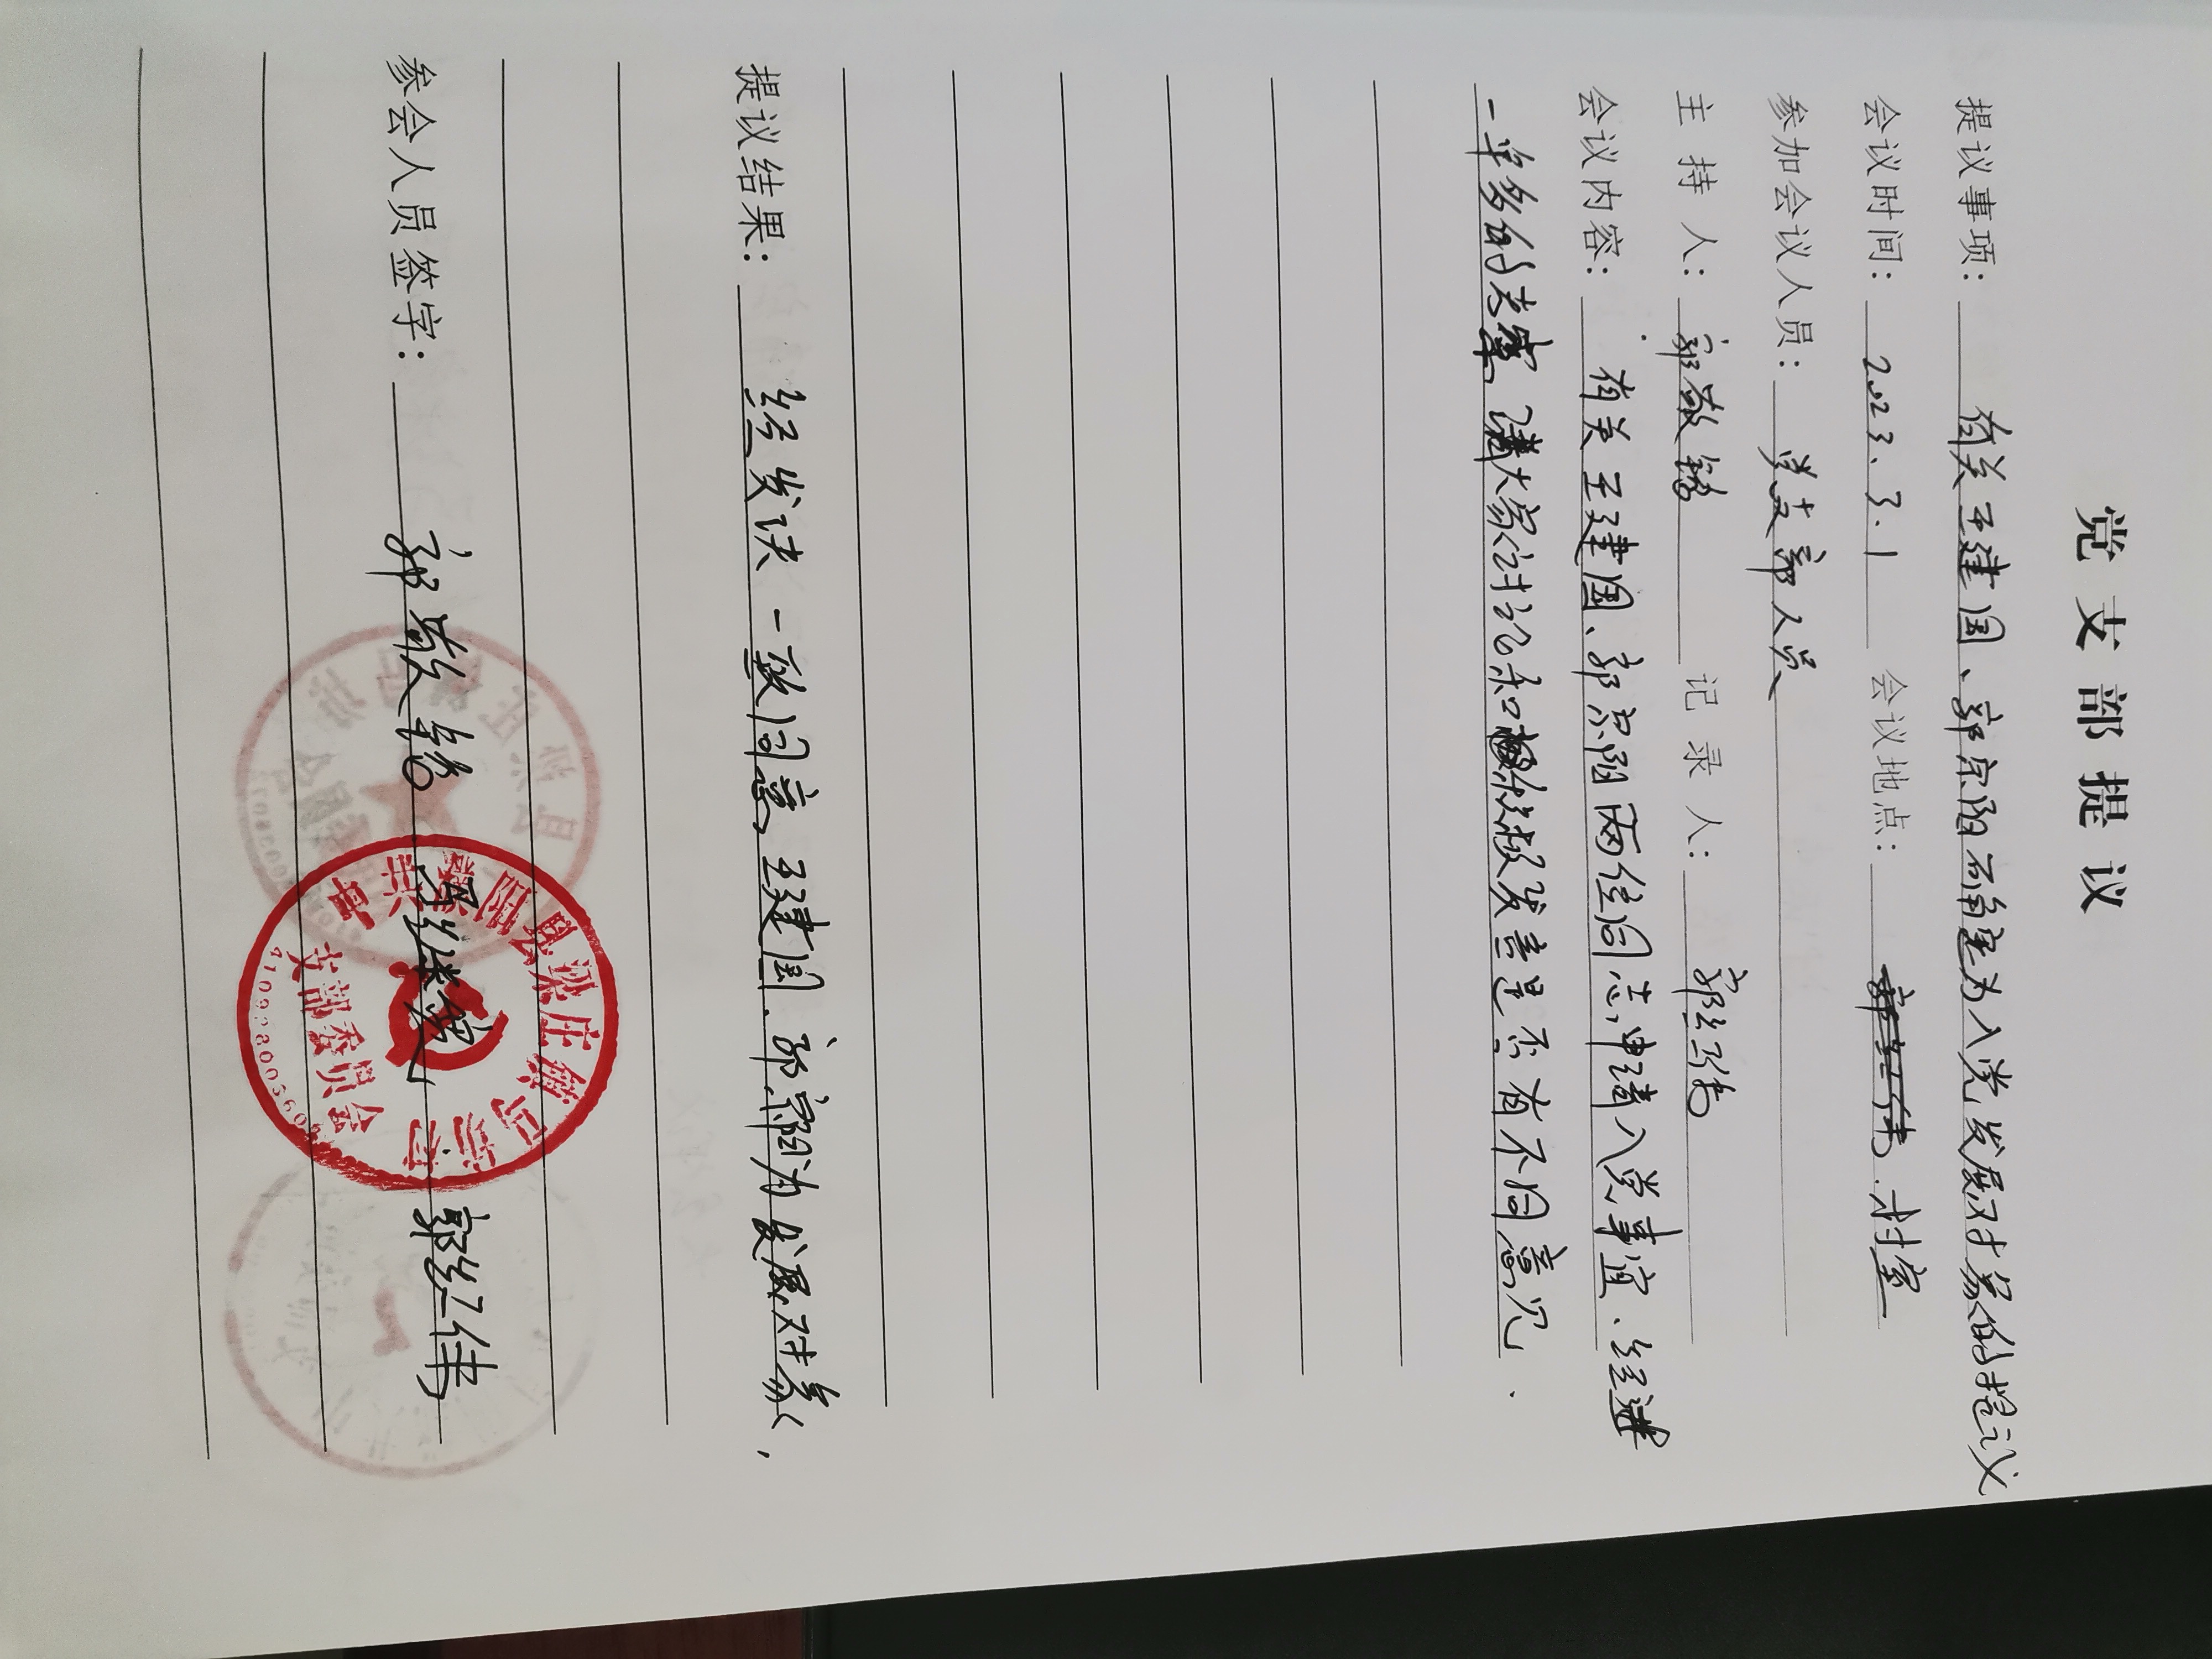 党支部提议
提议事项: 有关王建国、郭宗阳确定为入党发展对象的提议
会议时间: 2023.3.1 会议地点: 村室
参加会议人员: 党支部人员
主持人: 郭敬铭 记录人: 郭红伟
会议内容: 有关王建国、郭宗阳两位同志申请入党事宜、经进
一年多的考察 请大家讨论和积极发言是否有不同意见.
提议结果: 经发决一致同意王建国、郭宗阳为发展对象,
中共濮阳县梁庄镇马街村
参会人员签字: 郭敬 郭红伟
支部委员会